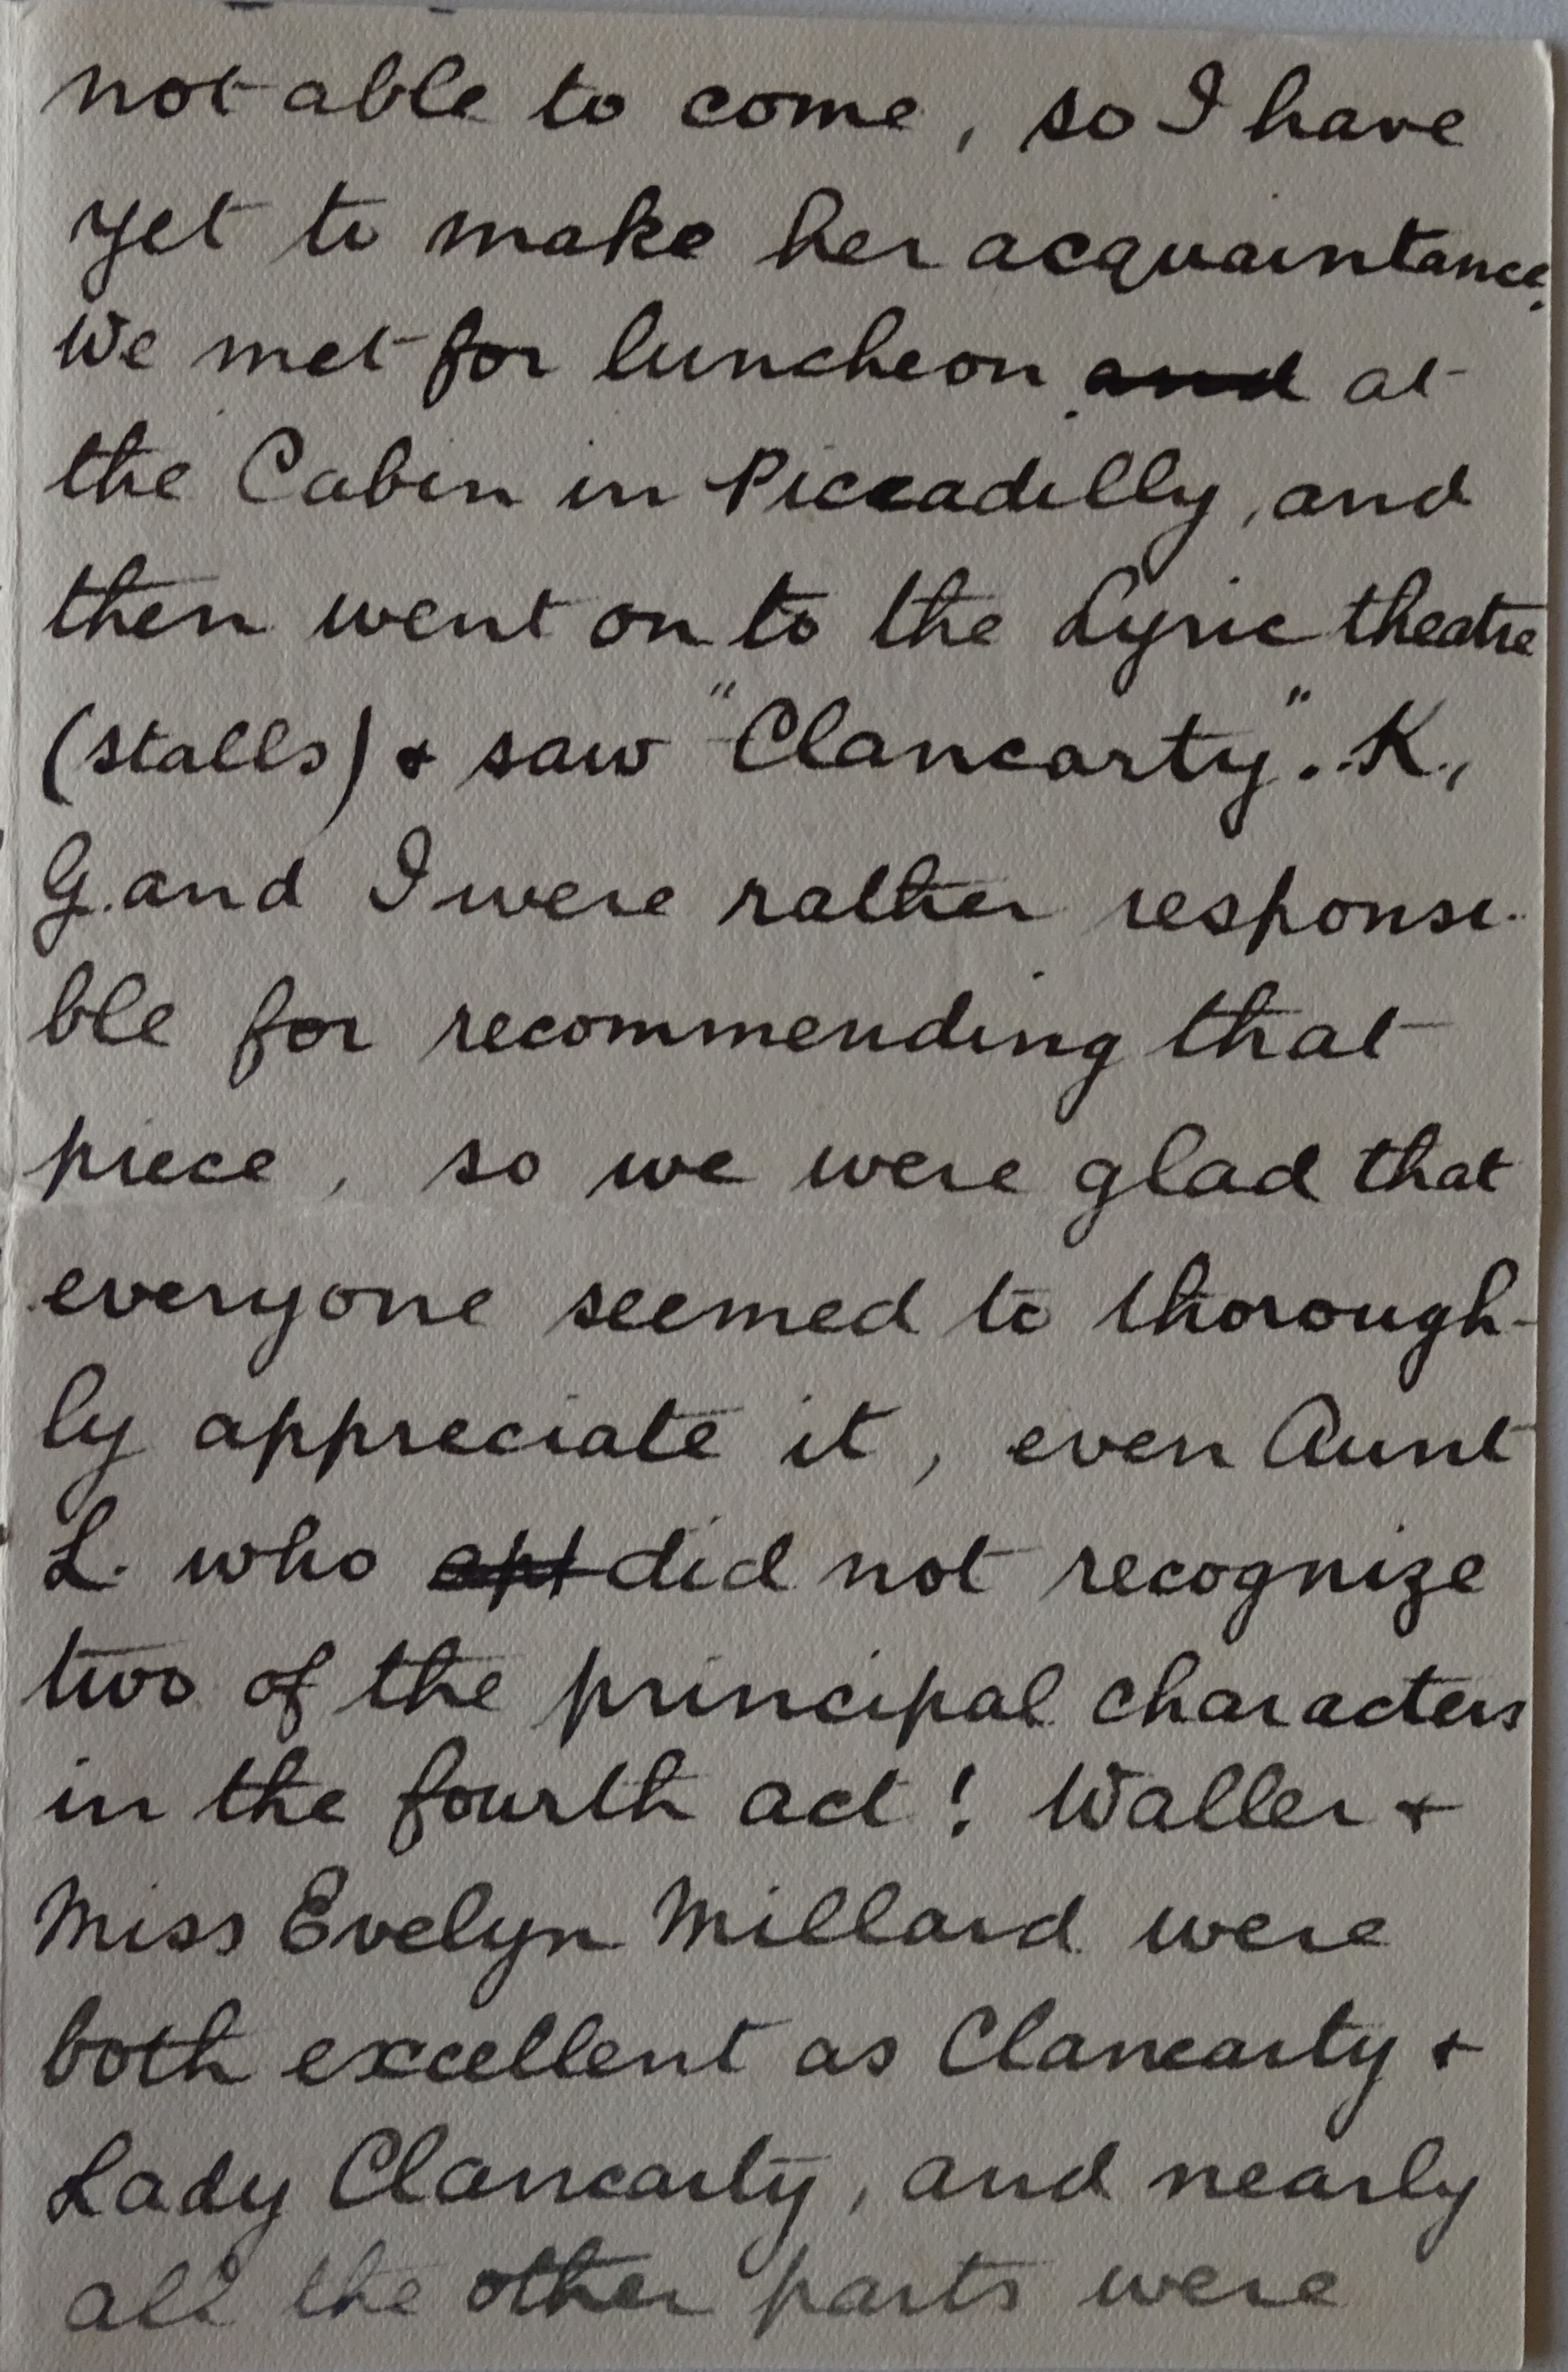 not able to come, so I have
yet to make her acquaintance.
We met for luncheon and at
the Cabin in Piccadilly, and
then went on to the Lyric theatre
(stalls) & saw "Clancarty". K.,
G. and I were rather responsi-
ble for recommending that
piece, so we were glad that
everyone seemed to thorough-
ly appreciate it, even Aunt
L. who did not recognize
two of the principal characters
in the fourth act! Waller &
Miss Evelyn Millard were
both excellent as Clancarty &
Lady Clancarty, and nearly
all the other parts were